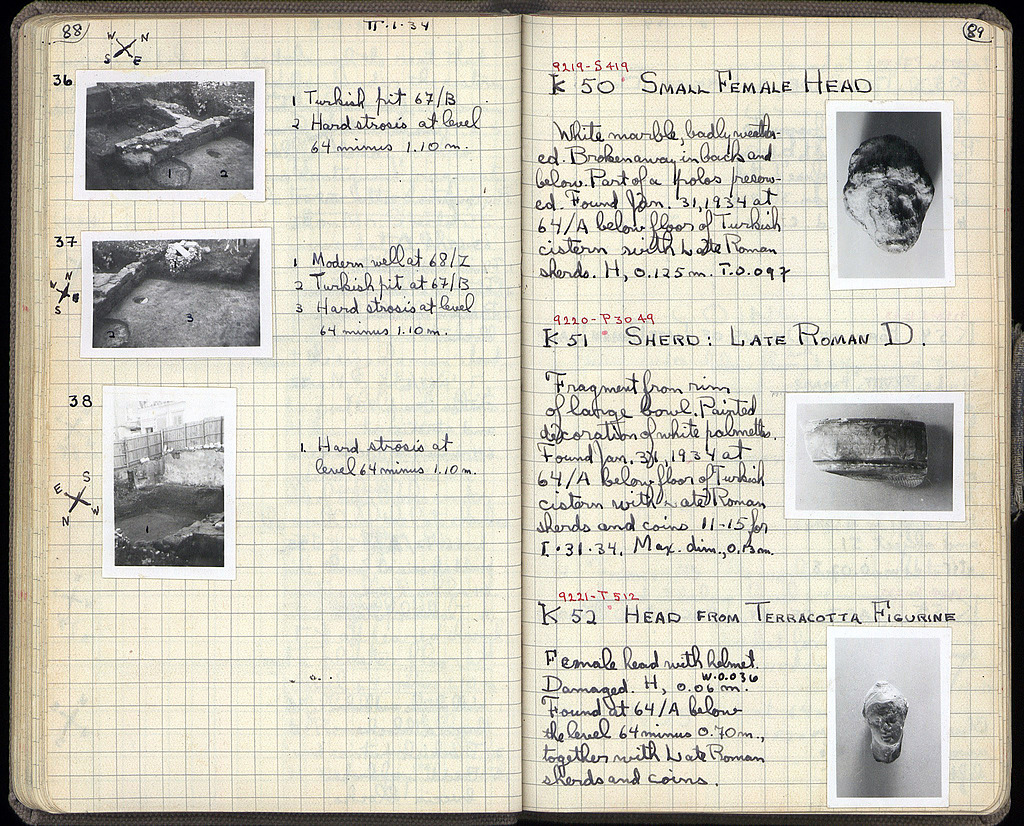 88
II·1·34
W N
S E
36
1 Turkish pit 67/B
2 Hard strosis at level
64 minus 1.10 m.
1 2
37
N
W E
S
1 Modern well at 68/Z
2 Turkish pit at 67/B
3 Hard strosis at level
64 minus 1.10 m.
1
2 3
38
1. Hard strosis at
level 64 minus 1.10 m.
E S
N W
1
89
9219-S419
K 50 SMALL FEMALE HEAD
White marble, badly weather-
ed. Broken away in back and
below. Part of a polos preserv-
ed. Found Jan. 31, 1934 at
64/A below floor of Turkish
cistern with Late Roman
sherds. H, 0.125 m. T. 0.097
9220-P3049
K 51 SHERD: LATE ROMAN D.
Fragment from rim
of large bowl. Painted
decoration of white palmettes.
Found Jan. 31, 1934 at
64/A below floor of Turkish
cistern with Late Roman
sherds and coins 11-15 for
I·31·34. Max. dim., 0.13 m.
9221-T512
K 52 HEAD FROM TERRACOTTA FIGURINE
Female head with helmet.
Damaged. H, 0.06 m. W. 0.036
Found at 64/A below
the level 64 minus 0.70 m.,
together with Late Roman
sherds and coins.